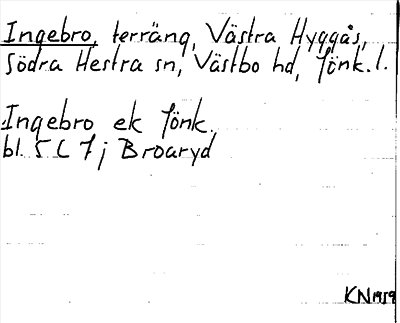 Ingebro, terräng, Västra Hyggås,
Södra Hestra sn, Västbo hd, Jönk. l.
Ingebro ek Jönk.
bl. 5 C 7 j Broaryd
KN 1959